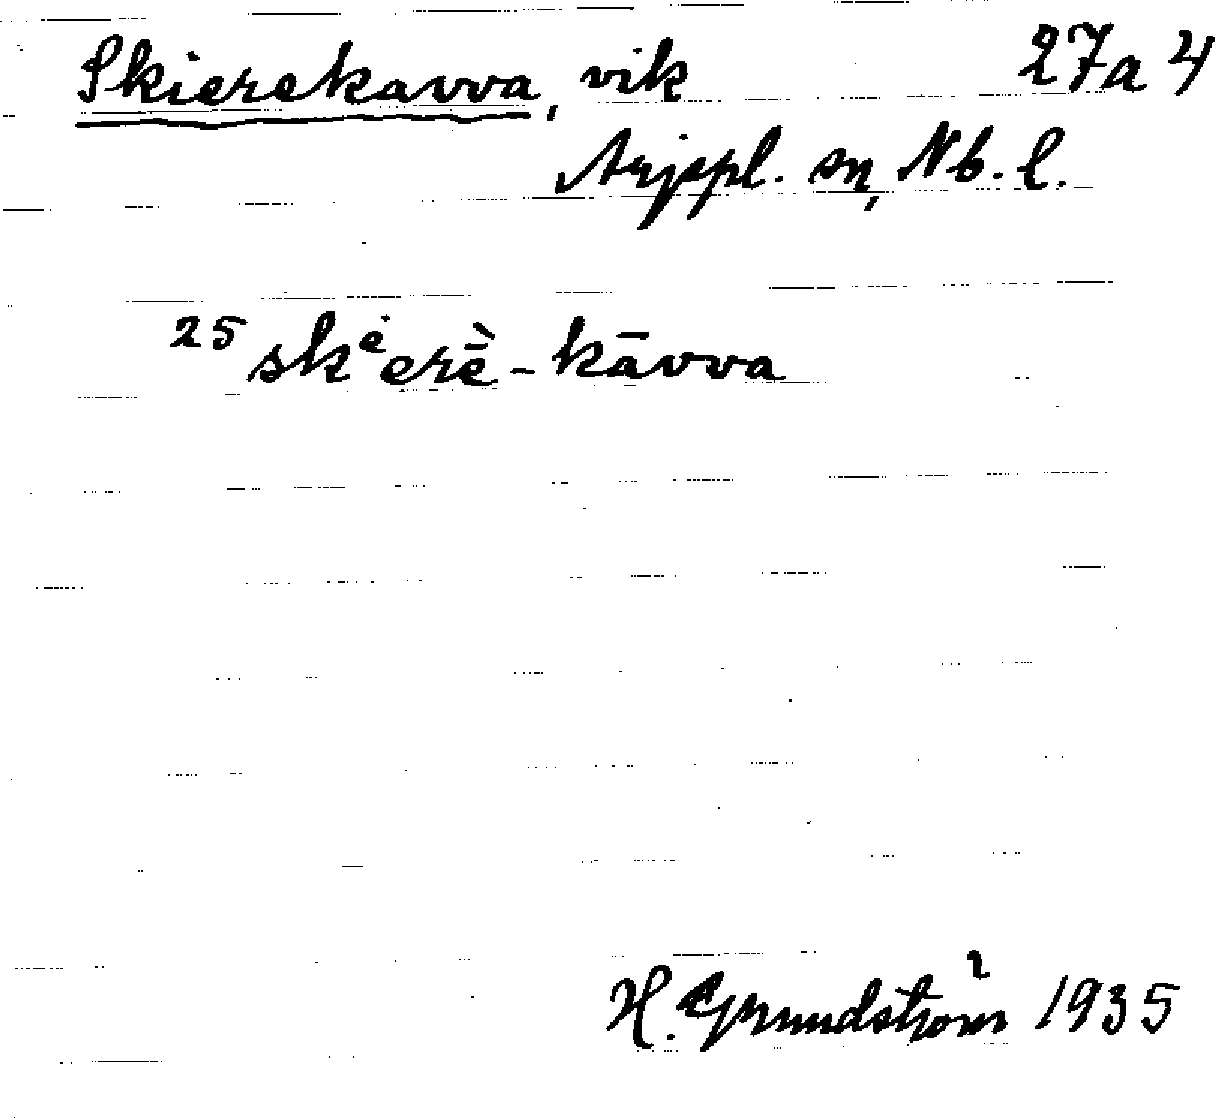 Skierekavva, vik 27a 4
Arjepl. sn, Nb. l.
25 skᵉ̇erḕ-kāvva
H. Grundström 1935